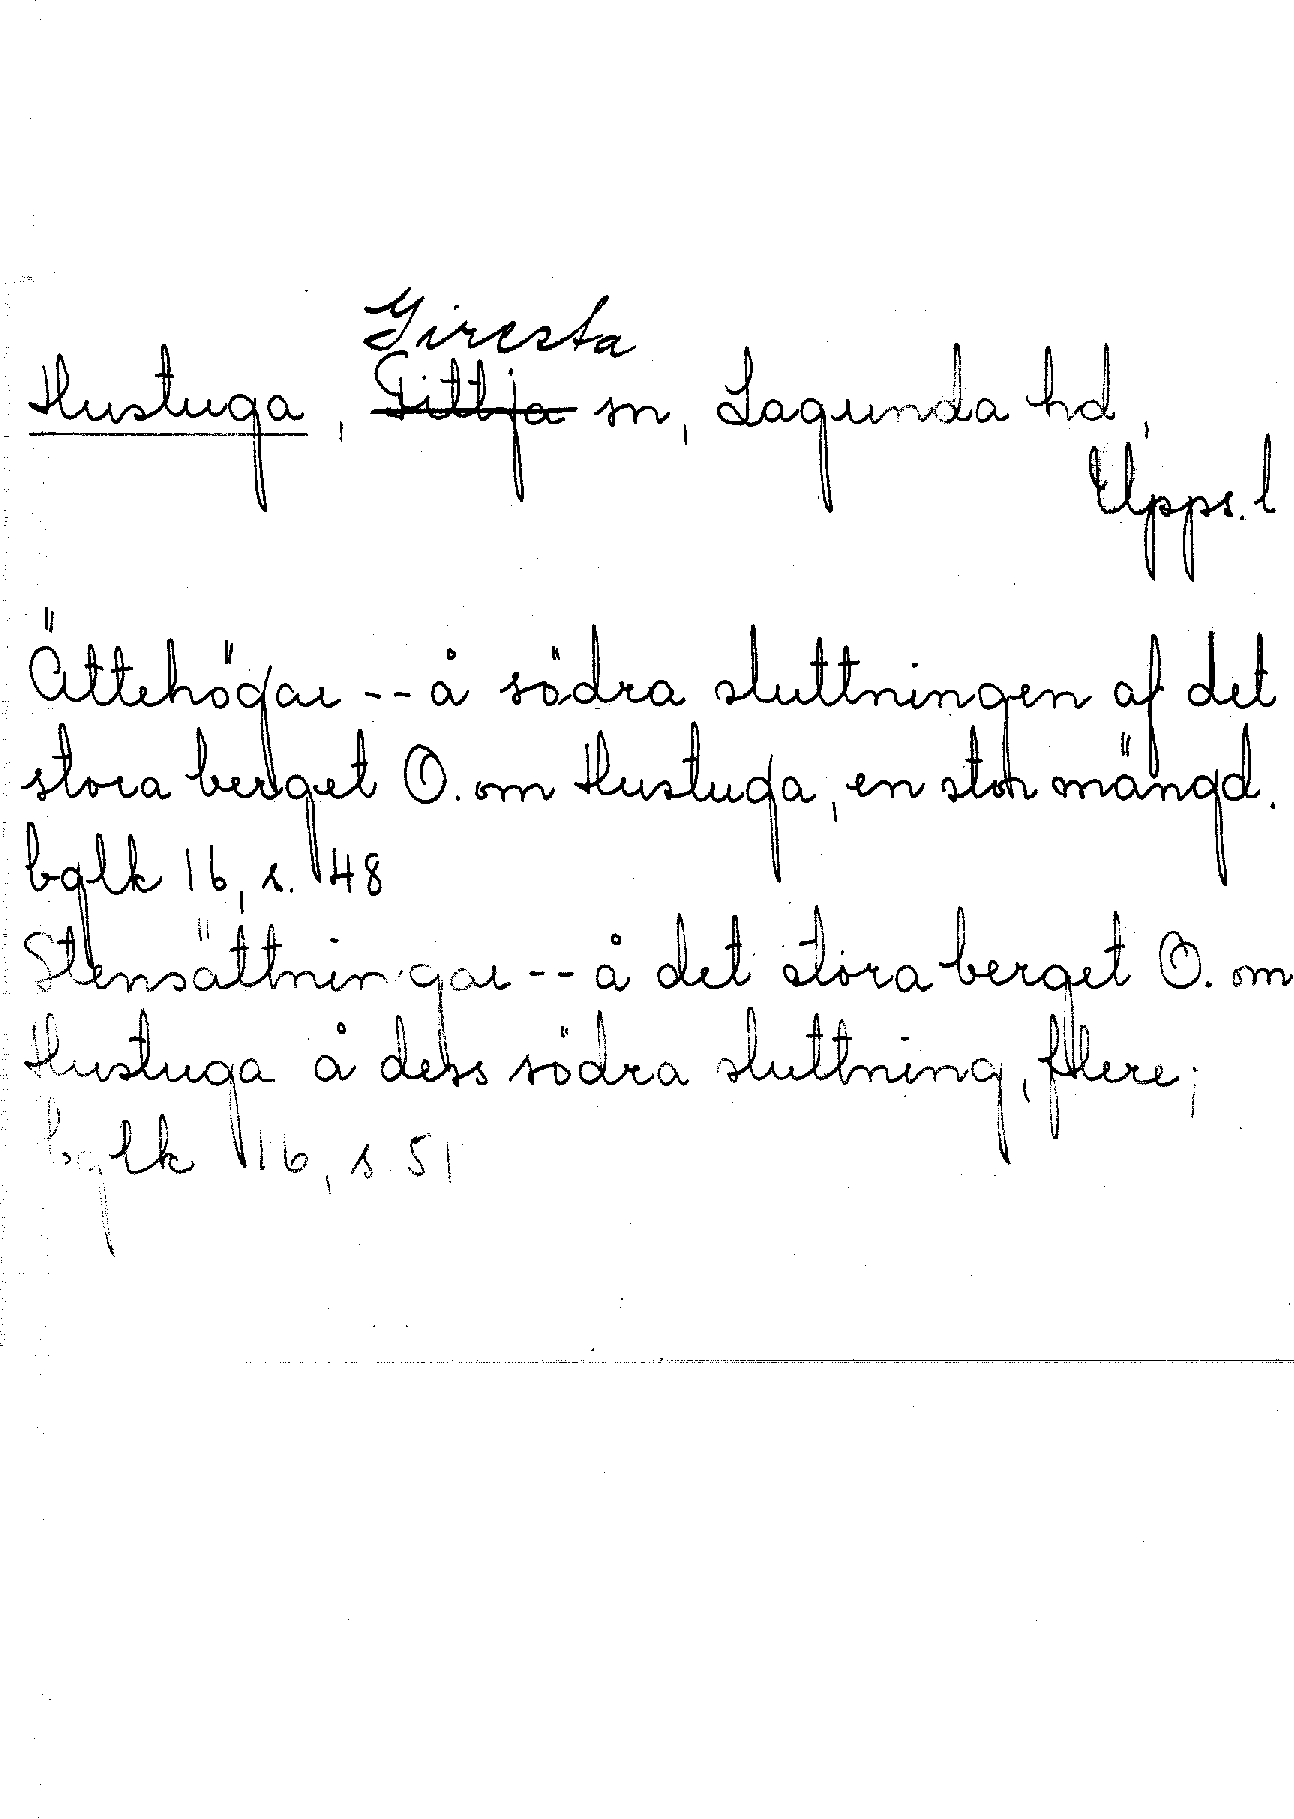 Giresta
Hustuga, Fittja sn, Lagunda hd,
Upps. l
Ättehögar -- å södra sluttningen af det
stora berget O. om Hustuga, en stor mängd.
bglk 16, s. 48
Stensättningar -- å det stora berget O. om
Hustuga å dess södra sluttning, flere;
bglk 16, s 51